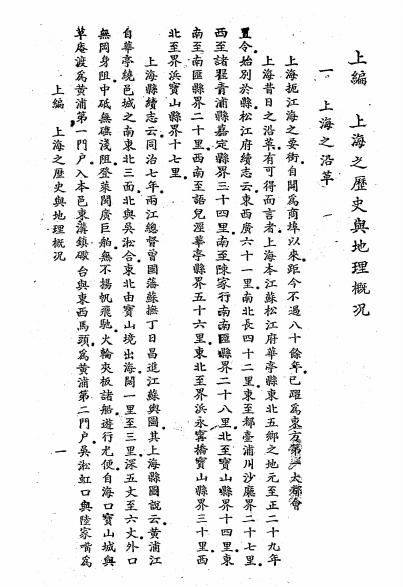 上編　上海之歷史與地理概況
一　上海之沿革
上海扼江海之要衝自闢為商埠以來距今不過八十餘年已躍為東方第大都會
上海昔日之沿革有可得而言者上海本江蘇松江府華亭縣東北五鄉之地元至正二十九年
置令始別於縣松江府續志云東西廣六十一里南北長四十二里東至都臺浦川沙廳界二十七里
西至諸翟青浦縣嘉定縣界三十四里南至陳家行南南匯縣界二十八里北至寶山縣界十四里東
南至南匯縣界二十里西南至語兒涇華亭縣界五十六里東北至界浜永寗橋寶山縣界三十里西
北至界浜寶山縣界十七里
上海縣續志云同治七年兩江總督曾國藩蘇撫丁日昌進江蘇輿圖其上海縣圖說云黃浦江
自華亭繞邑城之南東北三面北與吳淞合東北由寶山境出海闊一里至三里深五丈至六大外口
無岡身阻中砥無礁淺阻登萊閩廣巨舶無不揚帆飛馳火輪夾板諸船遊行尤便自海口寶山城與
草庵渡為黃浦第一門戶入本邑東溝鎮礮台與東西馬頭為黃浦第二門戶吳淞虹口與陸家嘴為
上編　上海之歷史與地理概況
一